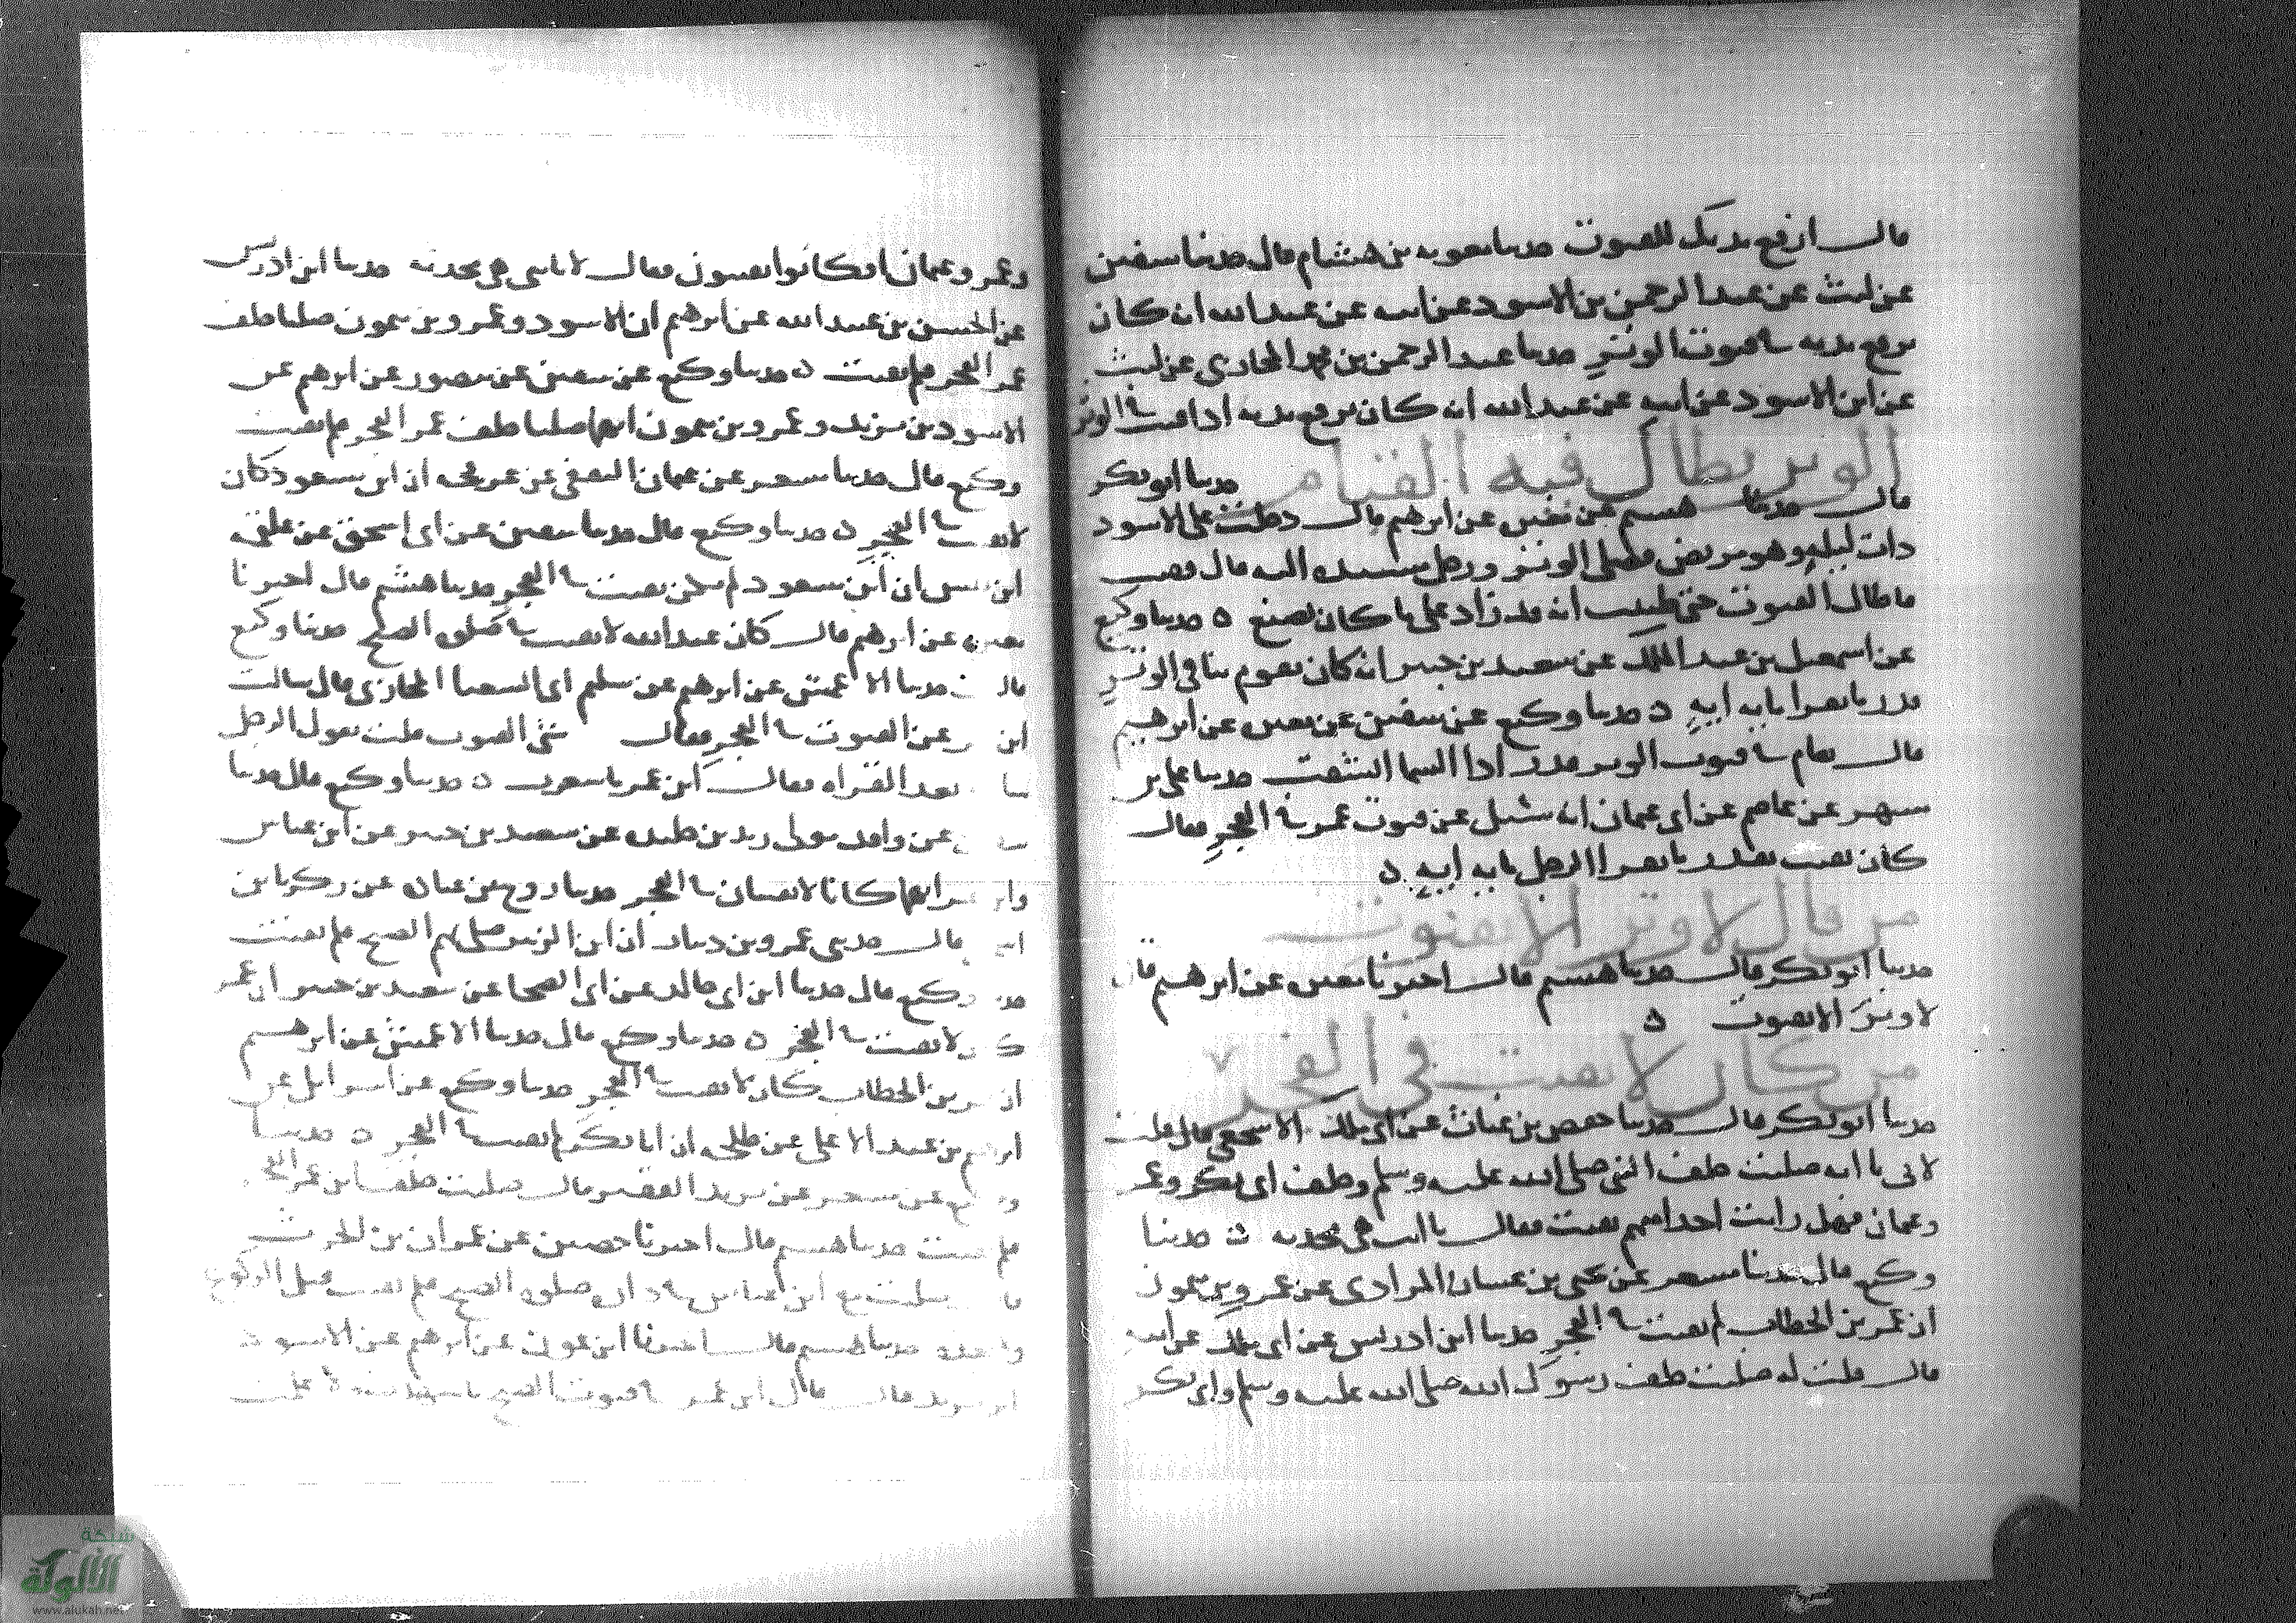 قال ارفع يديك للقنوت حدثنا معوية بن هشام قال حدثنا سفين
عن ليث عن عبد الرحمن بن الاسود عن ابيه عن عبد الله انه كان
يرفع يديه في قنوت الوتر حدثنا عبد الرحمن بن محمد المحاربي عن ليث
عن ابن الاسود عن ابيه عن عبد الله انه كان يرفع يديه اذا قنت في الوتر
الوتر يطال فيه القيام حدثنا ابو بكر
قال حدثنا هشيم عن مغيره عن ابرهيم قال دخلت على الاسود
ذات ليله وهو مريض فصلى الوتر ورجل مسنده اليه قال فقنت
فاطال القنوت حتى ظننت انه قد زاد على ما كان يصنع ه حدثنا وكيع
عن اسمعيل بن عبد الملك عن سعيد بن جبير انه كان يقوم بنا في الوتر
قدر ما يقرا مايه ايه ه حدثنا وكيع عن سفين عن مغيره عن ابرهيم
قال يقام في قنوت الوتر قدر اذا السما انشقت حدثنا علي بن
مسهر عن عاصم عن ابي عثمان انه سئل عن قنوت عمر في الفجر فقال
كان يقنت بقدر ما يقرا الرجل مايه ايه ه
من قال لا وتر الا بقنوت
حدثنا ابو بكر قال حدثنا هشيم قال اخبرنا مغيره عن ابرهيم قال
لا وتر الا بقنوت ه
من كان لا يقنت في الفجر
حدثنا ابو بكر قال حدثنا حفص بن غياث عن ابي ملك الاشجعي قال قلت
لابي يا ابه صليت خلف النبي صلى الله عليه وسلم وخلف ابي بكر وعمر
وعثمان فهل رايت احدا منهم يقنت فقال يا بني هي محدثه ه حدثنا
وكيع قال حدثنا مسعر عن يحيى بن غسان المرادي عن عمرو بن ميمون
ان عمر بن الخطاب لم يقنت في الفجر حدثنا ابن ادريس عن ابي ملك عن ابيه
قال قلت له صليت خلف رسول الله صلى الله عليه وسلم وابي بكر
وعمر وعثمان افكانوا يقنتون فقال لا يا بني هي محدثه حدثنا ابن ادريس
عن الحسن بن عبيد الله عن ابرهيم ان الاسود وعمرو بن ميمون صليا خلف
عمر الفجر فلم يقنت ه حدثنا وكيع عن سفين عن منصور عن ابرهيم عن
الاسود بن يزيد وعمرو بن ميمون انهما صليا خلف عمر الفجر فلم يقنت
وكيع قال حدثنا مسعر عن عثمان الثقفي عن عرفجه ان ابن مسعود كان
لا يقنت في الفجر ه حدثنا وكيع قال حدثنا سفين عن ابي اسحق عن علقمه
ابن قيس ان ابن مسعود لم يكن يقنت في الفجر حدثنا هشيم قال اخبرنا
مغيره عن ابرهيم قال كان عبد الله لا يقنت في صلوه الصبح حدثنا وكيع
قال حدثنا الاعمش عن ابرهيم عن سليم ابي الشعثا المحاربي قال سالت
ابن عمر عن القنوت في الفجر فقال شي القنوت قلت يقول الرجل
بعد القراه فقال ابن عمر ما شعرت ه حدثنا وكيع قال حدثنا
عن واقد مولى زيد بن خليده عن سعيد بن جبير عن ابن عباس
وابن عمر انهما كانا لا يقنتان في الفجر حدثنا روح بن عباده عن زكريا بن
اسحق قال حدثني عمرو بن دينار ان ابن الزبير صلى بهم الصبح فلم يقنت
حدثنا وكيع قال حدثنا ابن ابي خالد عن ابي الضحا عن سعيد بن جبير ان عمر
كان لا يقنت في الفجر ه حدثنا وكيع قال حدثنا الاعمش عن ابرهيم
ان عمر بن الخطاب كان لا يقنت في الفجر حدثنا وكيع عن اسرائيل عن
ابرهيم بن عبد الاعلى عن طلحه ان ابا بكر لم يقنت في الفجر ه حدثنا
وكيع عن مسعر عن يزيد الفقير قال صليت خلف ابن عمر الفجر
فلم يقنت حدثنا هشيم قال اخبرنا حصين عن عمران بن الحرث
قال صليت مع ابن عباس في داره صلوه الصبح فلم يقنت قبل الركوع
ولا بعده حدثنا هشيم قال اخبرنا ابن عون عن ابرهيم عن الاسود
ابن يزيد قال قال ابن عمر في قنوت الصبح ما شهدت ولا علمت
شبكة
الألوكة
www.alukah.net